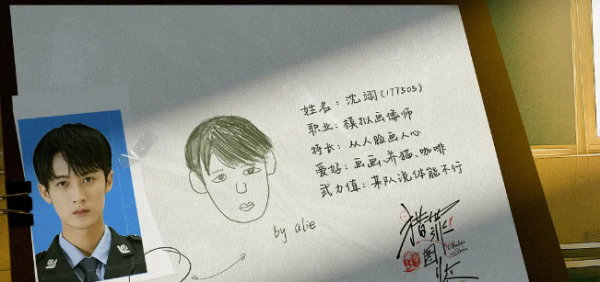 姓名：沈翊(177503)
职业：模拟画像师
特长：从人脸画人心
爱好：画画、养猫、咖啡
武力值：某队说体能不行
by alie
猎罪
图鉴